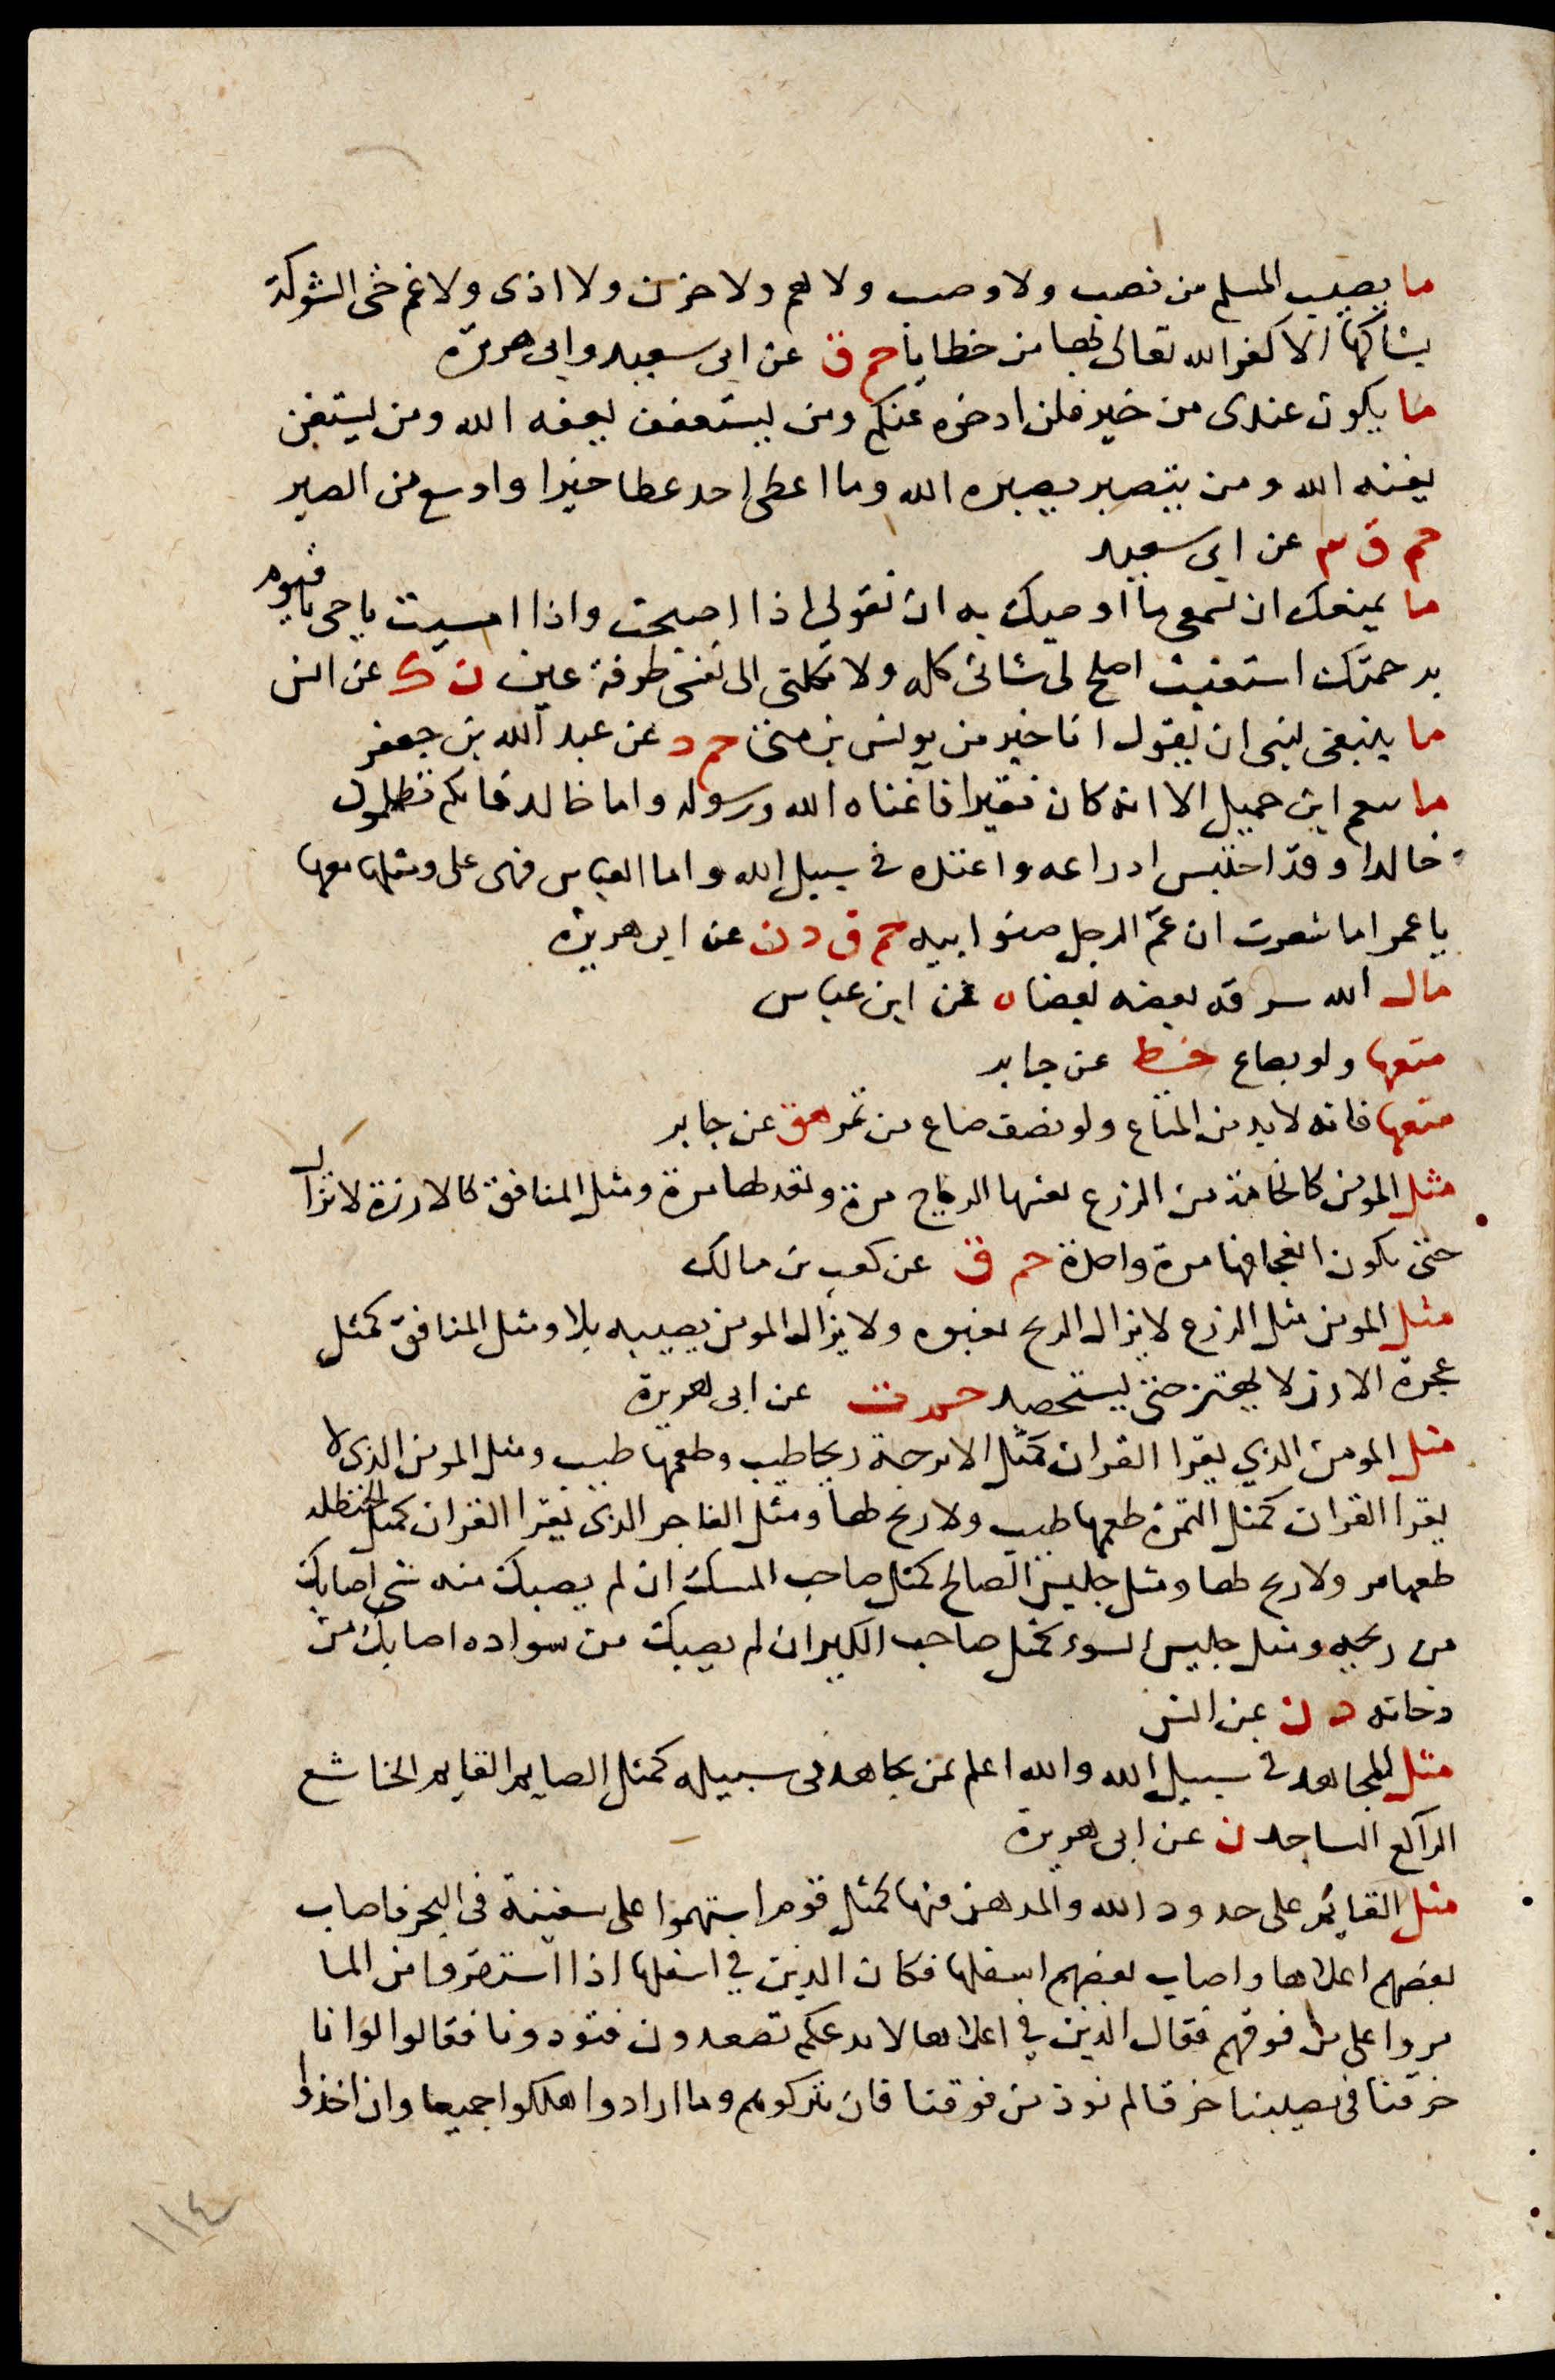 ما يصيب المسلم من نصب ولا وصب ولا هم ولا حزن ولا اذى ولا غم حتى الشوكة
يشاكها الا كفر الله تعالى بها من خطاياه حم ق عن ابى سعيد وابى هريرة
ما يكون عندى من خير فلن ادخره عنكم ومن يستعفف يعفه الله ومن يستغن
يغنه الله ومن يتصبر يصبره الله وما اعطى احد عطا خيرا واوسع من الصبر
حم ق ٣ عن ابى سعيد
ما يمنعك ان تسمعى ما اوصيك به ان تقولى اذا اصبحت واذا امسيت يا حى يا قيوم
برحمتك استغيث اصلح لى شانى كله ولا تكلنى الى نفسى طرفة عين ن ك عن انس
ما ينبغى لنبى ان يقول انا خير من يونس بن متى حم د عن عبد الله بن جعفر
ما ينقم ابن جميل الا انه كان فقيرا فاغناه الله ورسوله واما خالد فانكم تظلمون
خالدا وقد احتبس ادراعه واعتده فى سبيل الله واما العباس فهى على ومثلها معها
يا عمر اما شعرت ان عم الرجل صنو ابيه حم ق د ن عن ابى هريرة
مال الله سرق بعضه بعضا ه عن ابن عباس
متعها ولو بصاع خط عن جابر
متعها فانه لا بد من المتاع ولو نصف صاع من تمر هق عن جابر
مثل المومن كالخامة من الزرع تفيها الرياح مرة وتعدلها مرة ومثل المنافق كالارزة لا تزال
حتى يكون انجعافها مرة واحدة حم ق عن كعب بن مالك
مثل المومن مثل الزرع لا يزال الريح تفيوه ولا يزال المومن يصيبه بلا ومثل المنافق كمثل
شجرة الارز لا يهتز حتى يستحصد حم ت عن ابى هريرة
مثل المومن الذي يقرا القران كمثل الاترجة ريحها طيب وطعمها طيب ومثل المومن الذى لا
يقرا القران كمثل التمرة طعمها طيب ولا ريح لها ومثل الفاجر الذى يقرا القران كمثل الحنظلة
طعمها مر ولا ريح لها ومثل جليس الصالح كمثل صاحب المسك ان لم يصبك منه شى اصابك
من ريحه ومثل جليس السوء كمثل صاحب الكير ان لم يصبك من سواده اصابك من
دخانه د ن عن انس
مثل المجاهد فى سبيل الله والله اعلم بمن يجاهد فى سبيله كمثل الصايم القايم الخاشع
الراكع الساجد ن عن ابى هريرة
مثل القايم على حدود الله والمدهن فيها كمثل قوم استهموا على سفينة فى البحر فاصاب
بعضهم اعلاها واصاب بعضهم اسفلها فكان الذين في اسفلها اذا استقوا من الما
مروا على من فوقهم فقال الذين في اعلاها لا ندعكم تصعدون فتوذونا فقالوا لو انا
خرقنا فى نصيبنا خرقا لم نوذ من فوقنا فان تركوهم وما ارادوا هلكوا جميعا وان اخذوا
١١٤